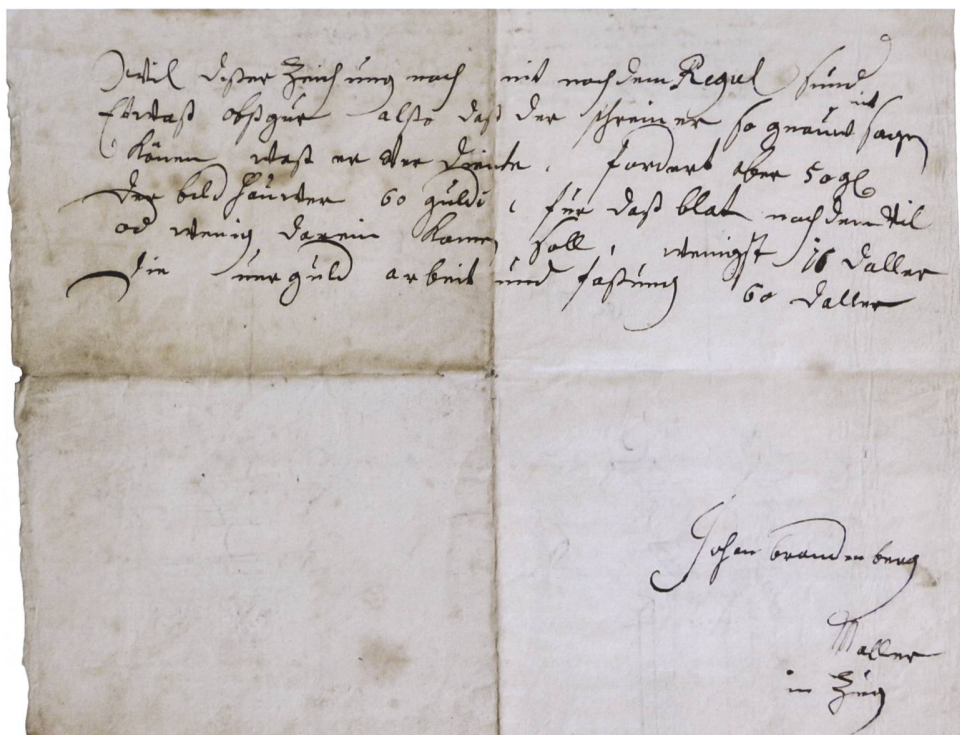 Wil diser Zeichnung nach nit nach dem Regul sund
Etwaß obßgur also daß der schreiner so genauw nit sagen
könen waß er Ver diente. fordert aber 50 gl
der bildhauwer 60 guldi, für daß blat nach dem Vil
od wenig darein komen soll, wenigst 16 daller
die verguld arbeit und faßung 60 daller
Johan brandenberg
Maller
in Zug